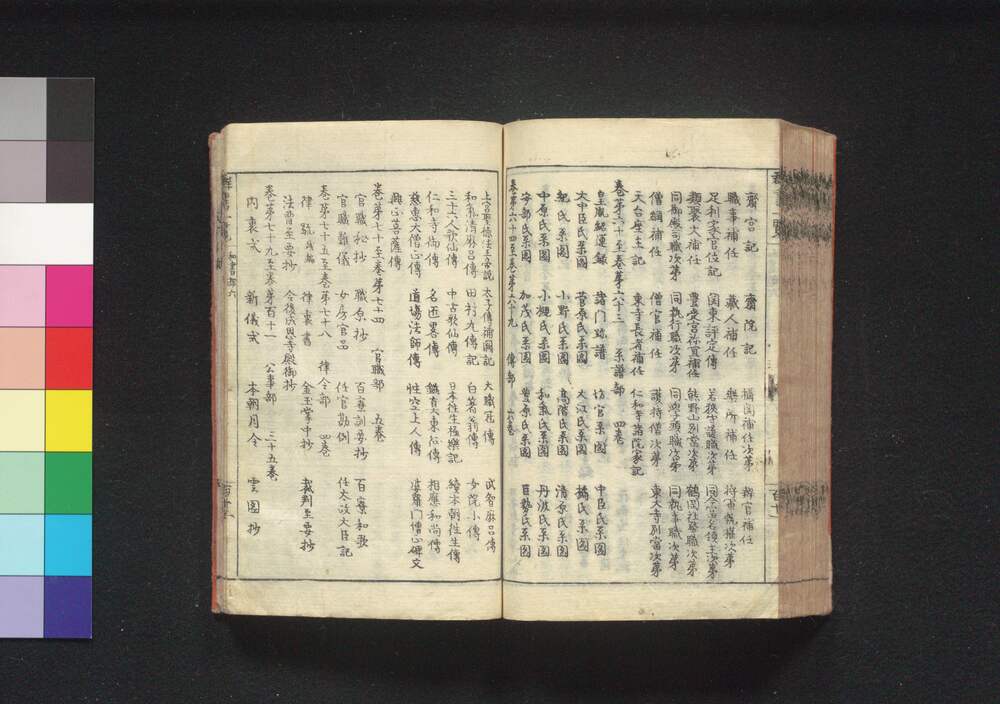 齋宮記 齋院記 補任次第 辨官補任
職事補任 藏人補任 樂所補任 將軍執權次第
足利家官位記 関東評定傳 若狹守護職次第
類聚大補任 豐受宮祢宜補任 熊野山別當次第 鶴岡社務職次第
同御殿司職次第 同執行職次第 同学頭職次第 同執事職次第
僧綱補任 僧官補任 護持僧次第 東大寺別當次第
天台座主記 東寺長者補任 仁和寺諸院家記
卷第六十至卷第六十三 系譜部 四卷
皇胤紹運録 諸門跡譜 坊官系圖 中臣氏系圖
大中臣氏系圖 菅原氏系圖 大江氏系圖 橘氏系圖
紀氏系圖 小野氏系圖 高階氏系圖 清原氏系圖
中原氏系圖 小槻氏系圖 和氣氏系圖 丹波氏系圖
安部氏系圖 加茂氏系圖 豐原氏系圖 巨勢氏系圖
卷第六十四至卷第六十九 傳部 六卷
上宮聖德法王帝説 太子傳補闕記 大職冠傳 武智麻呂傳
和氣清麻呂傳 田村丸傳記 白箸翁傳 女院小傳
三十六人歌仙傳 中古歌仙傳 日本往生極樂記 續本朝往生傳
仁和寺御傳 名匠畧傳 相應和尚傳
慈惠大僧正傳 道場法師傳 性空上人傳 婆羅門僧正碑文
興正菩薩傳
卷第七十至卷第七十四 官職部 五卷
官職秘抄 職原抄 百寮訓要抄 百寮和歌
官職難儀 女房官品 任官勘例 任太政大臣記
卷第七十五至卷第七十八 律令部 四卷
律疏殘編 律裏書 金玉掌中抄 裁判至要抄
法曹至要抄 今後成恩寺殿御抄
卷第七十九至卷第百十一 公事部 三十五卷
内裏式 新儀式 本朝月令 雲圖抄
和書部六